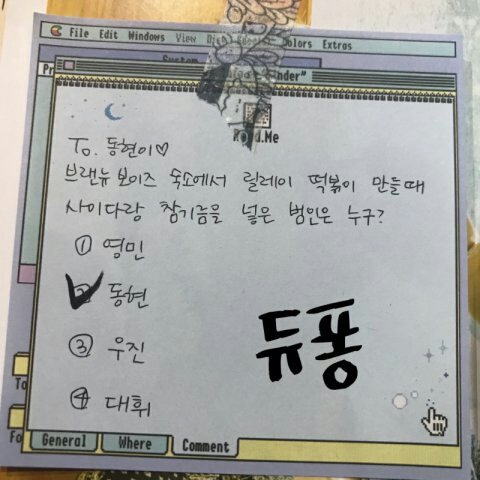 File Edit Windows View Colors Extras
System
Read.Me
To. 동현이♡
브랜뉴보이즈 숙소에서 릴레이 떡볶이 만들때
사이다랑 참기름을 넣은 범인은 누구?
① 영민
② 동현
③ 우진
④ 대휘
듀퐁
General Where Comment